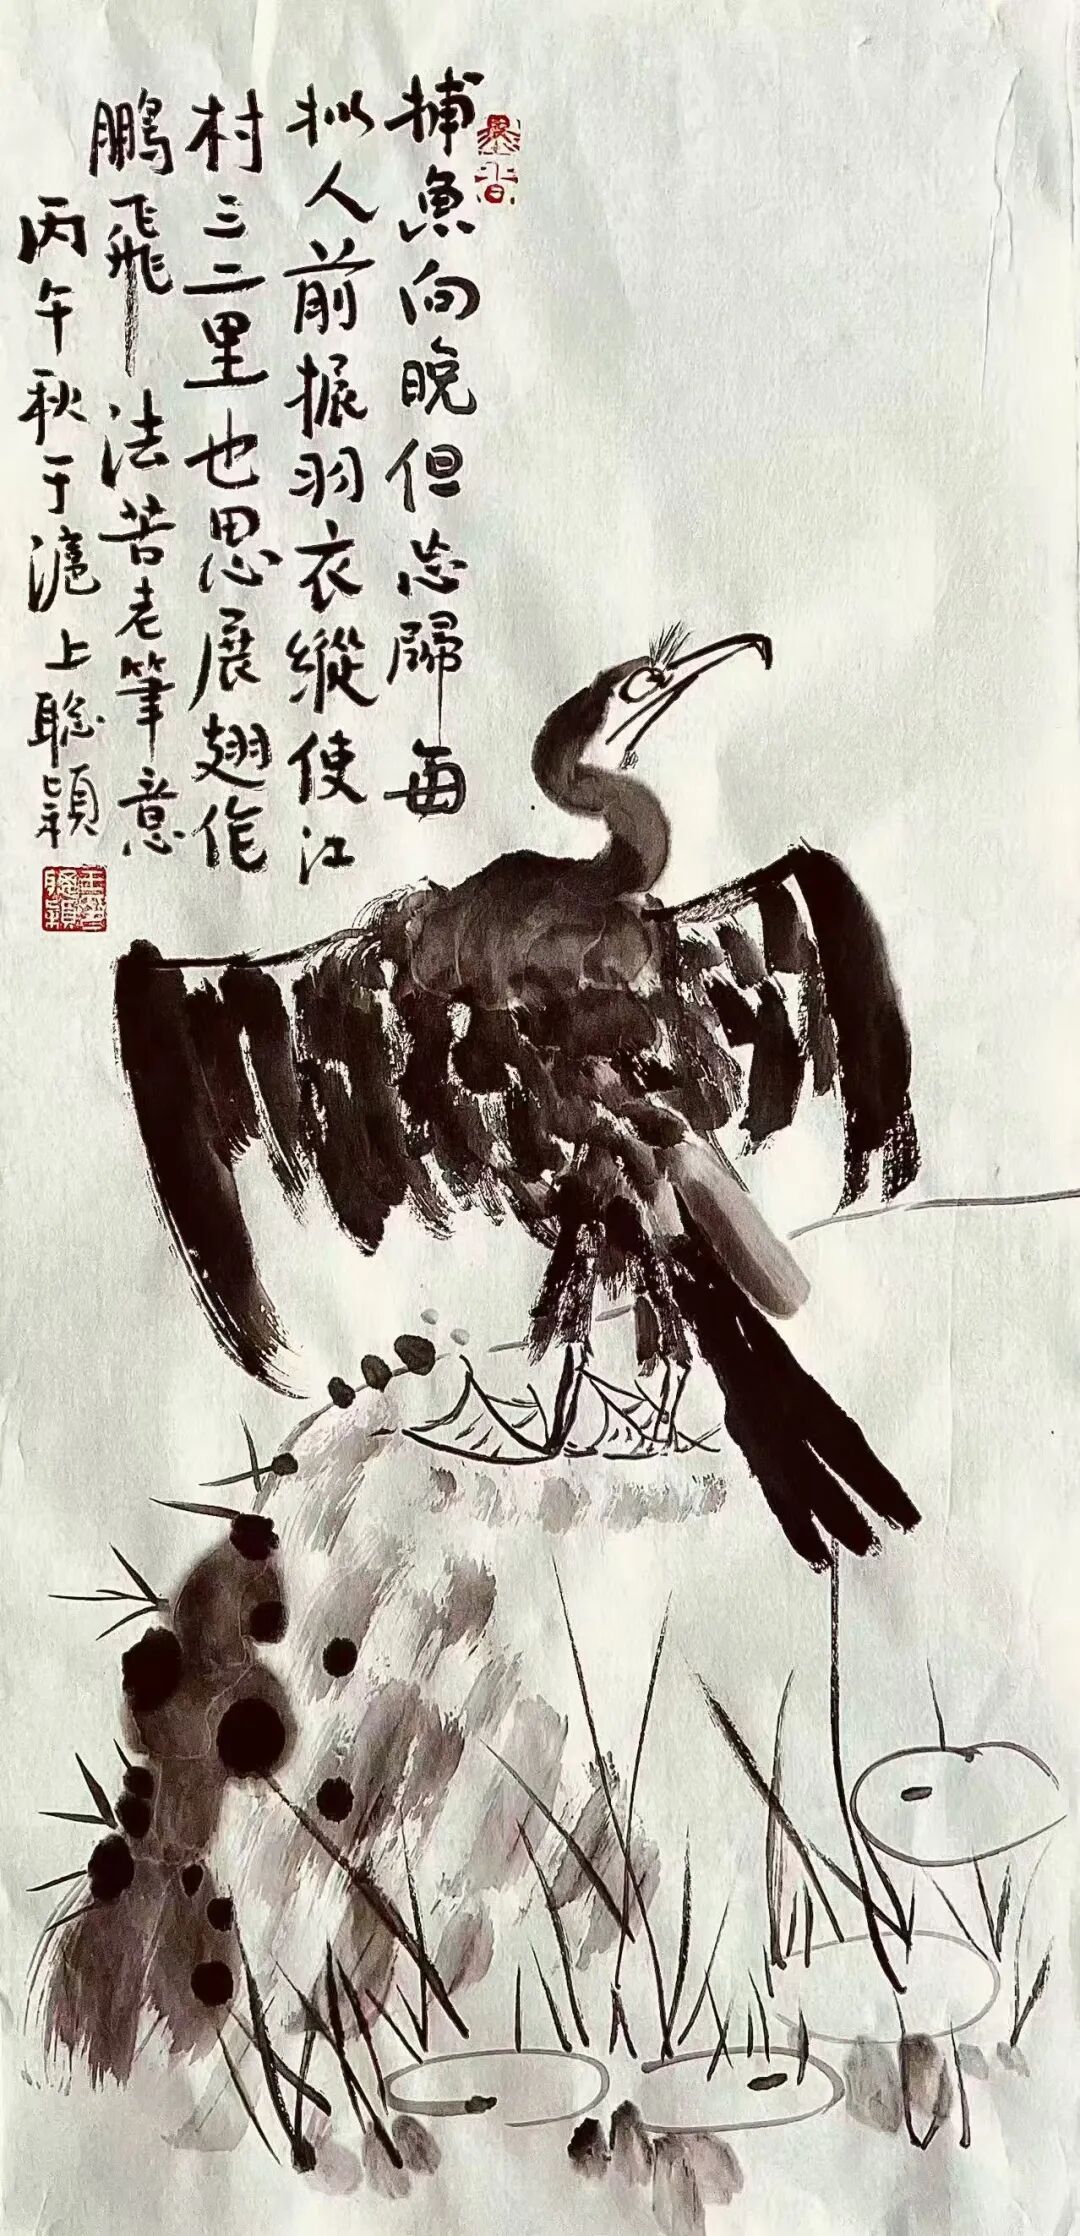 捕魚向晚但忘歸每
拟人前振羽衣縱使江
村三二里也思展翅作
鵬飛 法苦老筆意
丙午秋于滬上聪穎